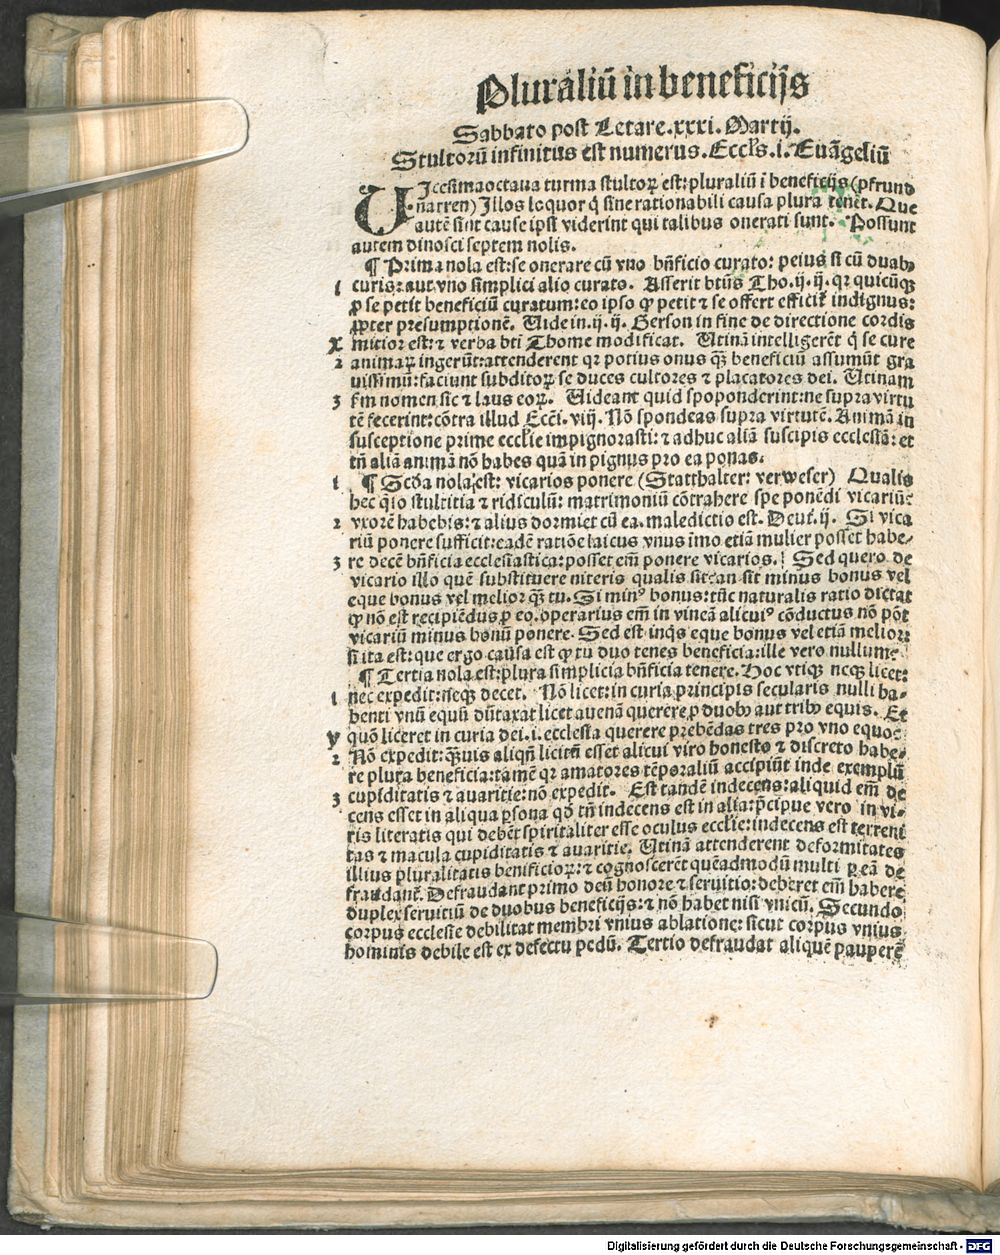 Pluraliū in beneficijs
Sabbato post Letare.xxxi.Martij.
Stultorū infinitus est numerus.Eccls.i.Euāgeliū
UJcesimaoctaua turma stultoꝝ est:pluraliū ī beneficijs(pfrund
narren)Jllos loquor q̇ sine rationabili causa plura tenēt.Que
autē sint cause ipsi viderint qui talibus onerati sunt. Possunt
autem dinosci septem nolis.
¶ Prima nola est:se onerare cū vno bn̄ficio curato: peius si cū duabꝰ
1 curis:aut vno simplici alio curato. Asserit btūs Tho.ij.ij.qꝛ quicūqꝫ
ꝑ se petit beneficiū curatum:eo ipso ꝙ petit ⁊ se offert efficit̄ indignus:
ꝓpter presumptionē. Uide in.ij.ij. Gerson in fine de directione cordis
X mitior est:⁊ verba bti Thome modificat. Utinā intelligerēt q̇ se cure
2 animaꝝ ingerūt:attenderent qꝛ potius onus qꝫ̄ beneficiū assumūt gra
uissimū:faciunt subditoꝝ se duces cultores ⁊ placatores dei. Utinam
3 ẜm nomen sic ⁊ laus eoꝝ. Uideant quid spoponderint:ne supra virtu
tē fecerint:cōtra illud Eccī.viij. Nō spondeas supra virtutē. Animā in
susceptione prime eccl̄ie impignorasti:⁊ adhuc aliā suscipis ecclesiā:et
tn̄ aliā animā nō habes quā in pignus pro ea ponas.
1 ¶ Scd̄a nola est: vicarios ponere (Statthalter: verweser) Qualis
hec q̄so stultitia ⁊ ridiculū: matrimoniū cōtrahere spe ponēdi vicariū:
2 vxorē habebis:⁊ alius dormiet cū ea.maledictio est. Deut̄.ij. Si vica
riū ponere sufficit:eadē ratiōe laicus vnus imo etiā mulier posset habe-
3 re decē bn̄ficia ecclesiastica:posset em̄ ponere vicarios. Sed quero de
vicario illo quē substituere niteris qualis sit:an sit minus bonus vel
eque bonus vel melior qꝫ̄ tu.Si minꝰ bonus:tūc naturalis ratio dictat
ꝙ nō est recipiēdus ꝑ eo.operarius em̄ in vineā alicuiꝰ cōductus nō pōt
vicariū minus bonū ponere. Sed est inqs̄ eque bonus vel etiā melior:
si ita est:que ergo causa est ꝙ tu duo tenes beneficia:ille vero nullum?
¶ Tertia nola est:plura simplicia bn̄ficia tenere. Hoc vtiqꝫ neqꝫ licet:
1 nec expedit:neqꝫ decet. Nō licet:in curia principis secularis nulli ha-
benti vnū equū dūtaxat licet auenā querere ꝑ duobꝰ aut tribꝰ equis. Et
y quō liceret in curia dei.i.ecclesia querere prebēdas tres pro vno equo?
2 Nō expedit:qꝫ̄uis aliqn̄ licitū esset alicui viro honesto ⁊ discreto habe-
re plura beneficia:tamē qꝛ amatores tēporaliū accipiūt inde exemplū
3 cupiditatis ⁊ auaritie:nō expedit. Est tandē indecens:aliquid em̄ de
cens esset in aliqua ꝑsona qd̄ tn̄ indecens est in alia:p̄cipue vero in vi-
ris literatis qui debēt spiritaliter esse oculus eccl̄ie:indecens est terreni
tas ⁊ macula cupiditatis ⁊ auaritie. Utinā attenderent deformitates
illius pluralitatis benificioꝝ:⁊ cognoscerēt quēadmodū multi ꝑ eā de
fraudant̄. Defraudant primo deū honore ⁊ seruitio:deberet em̄ habere
duplex seruitiū de duobus beneficijs:⁊ nō habet nisi vnicū. Secundo
corpus ecclesie debilitat membri vnius ablatione: sicut corpus vnius
hominis debile est ex defectu pedū. Tertio defraudat aliquē pauperē
Digitalisierung gefördert durch die Deutsche Forschungsgemeinschaft - DFG